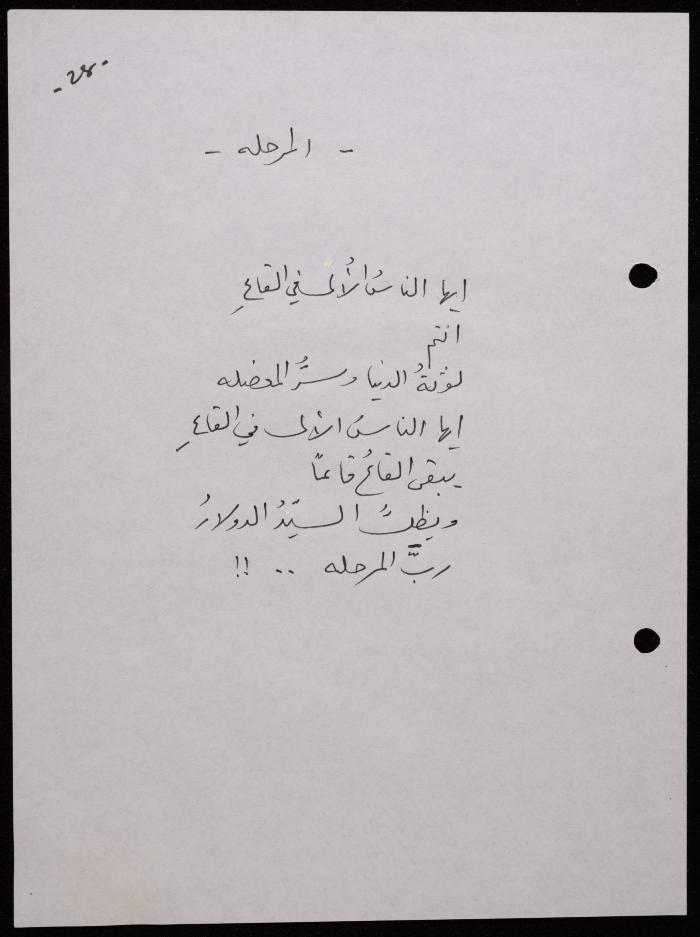 -٢٤-
- المرحله -
ايها الناسُ الأُلى في القاعِ
انتم
لوثةُ الدنيا وسرُّ المعضله
ايها الناسُ الألى في القاعِ
يبقى القاعُ قاعًا
ويظلُّ السيّدُ الدولارُ
ربَّ المرحله .. !!